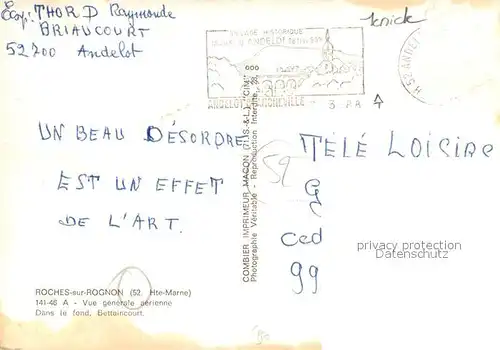 Exp: THOR D Raymonde
BRIAUCOURT
52700 Andelot
Knick
VILLAGE HISTORIQUE
ANDELOT
ANDELOT-BLANCHEVILLE
3 P.A
52 ANDELOT
UN BEAU DÉSORDRE
EST UN EFFET
DE L'ART.
COMBIER IMPRIMEUR MACON (S.-&-L.) "CIM"
Photographie Véritable - Reproduction Interdite
59
TÉLÉ LOISIRS
G
C
Ced
99
privacy protection
Datenschutz
ROCHES-sur-ROGNON (52. Hte-Marne)
141-46 A - Vue générale aérienne
Dans le fond, Bettaincourt.